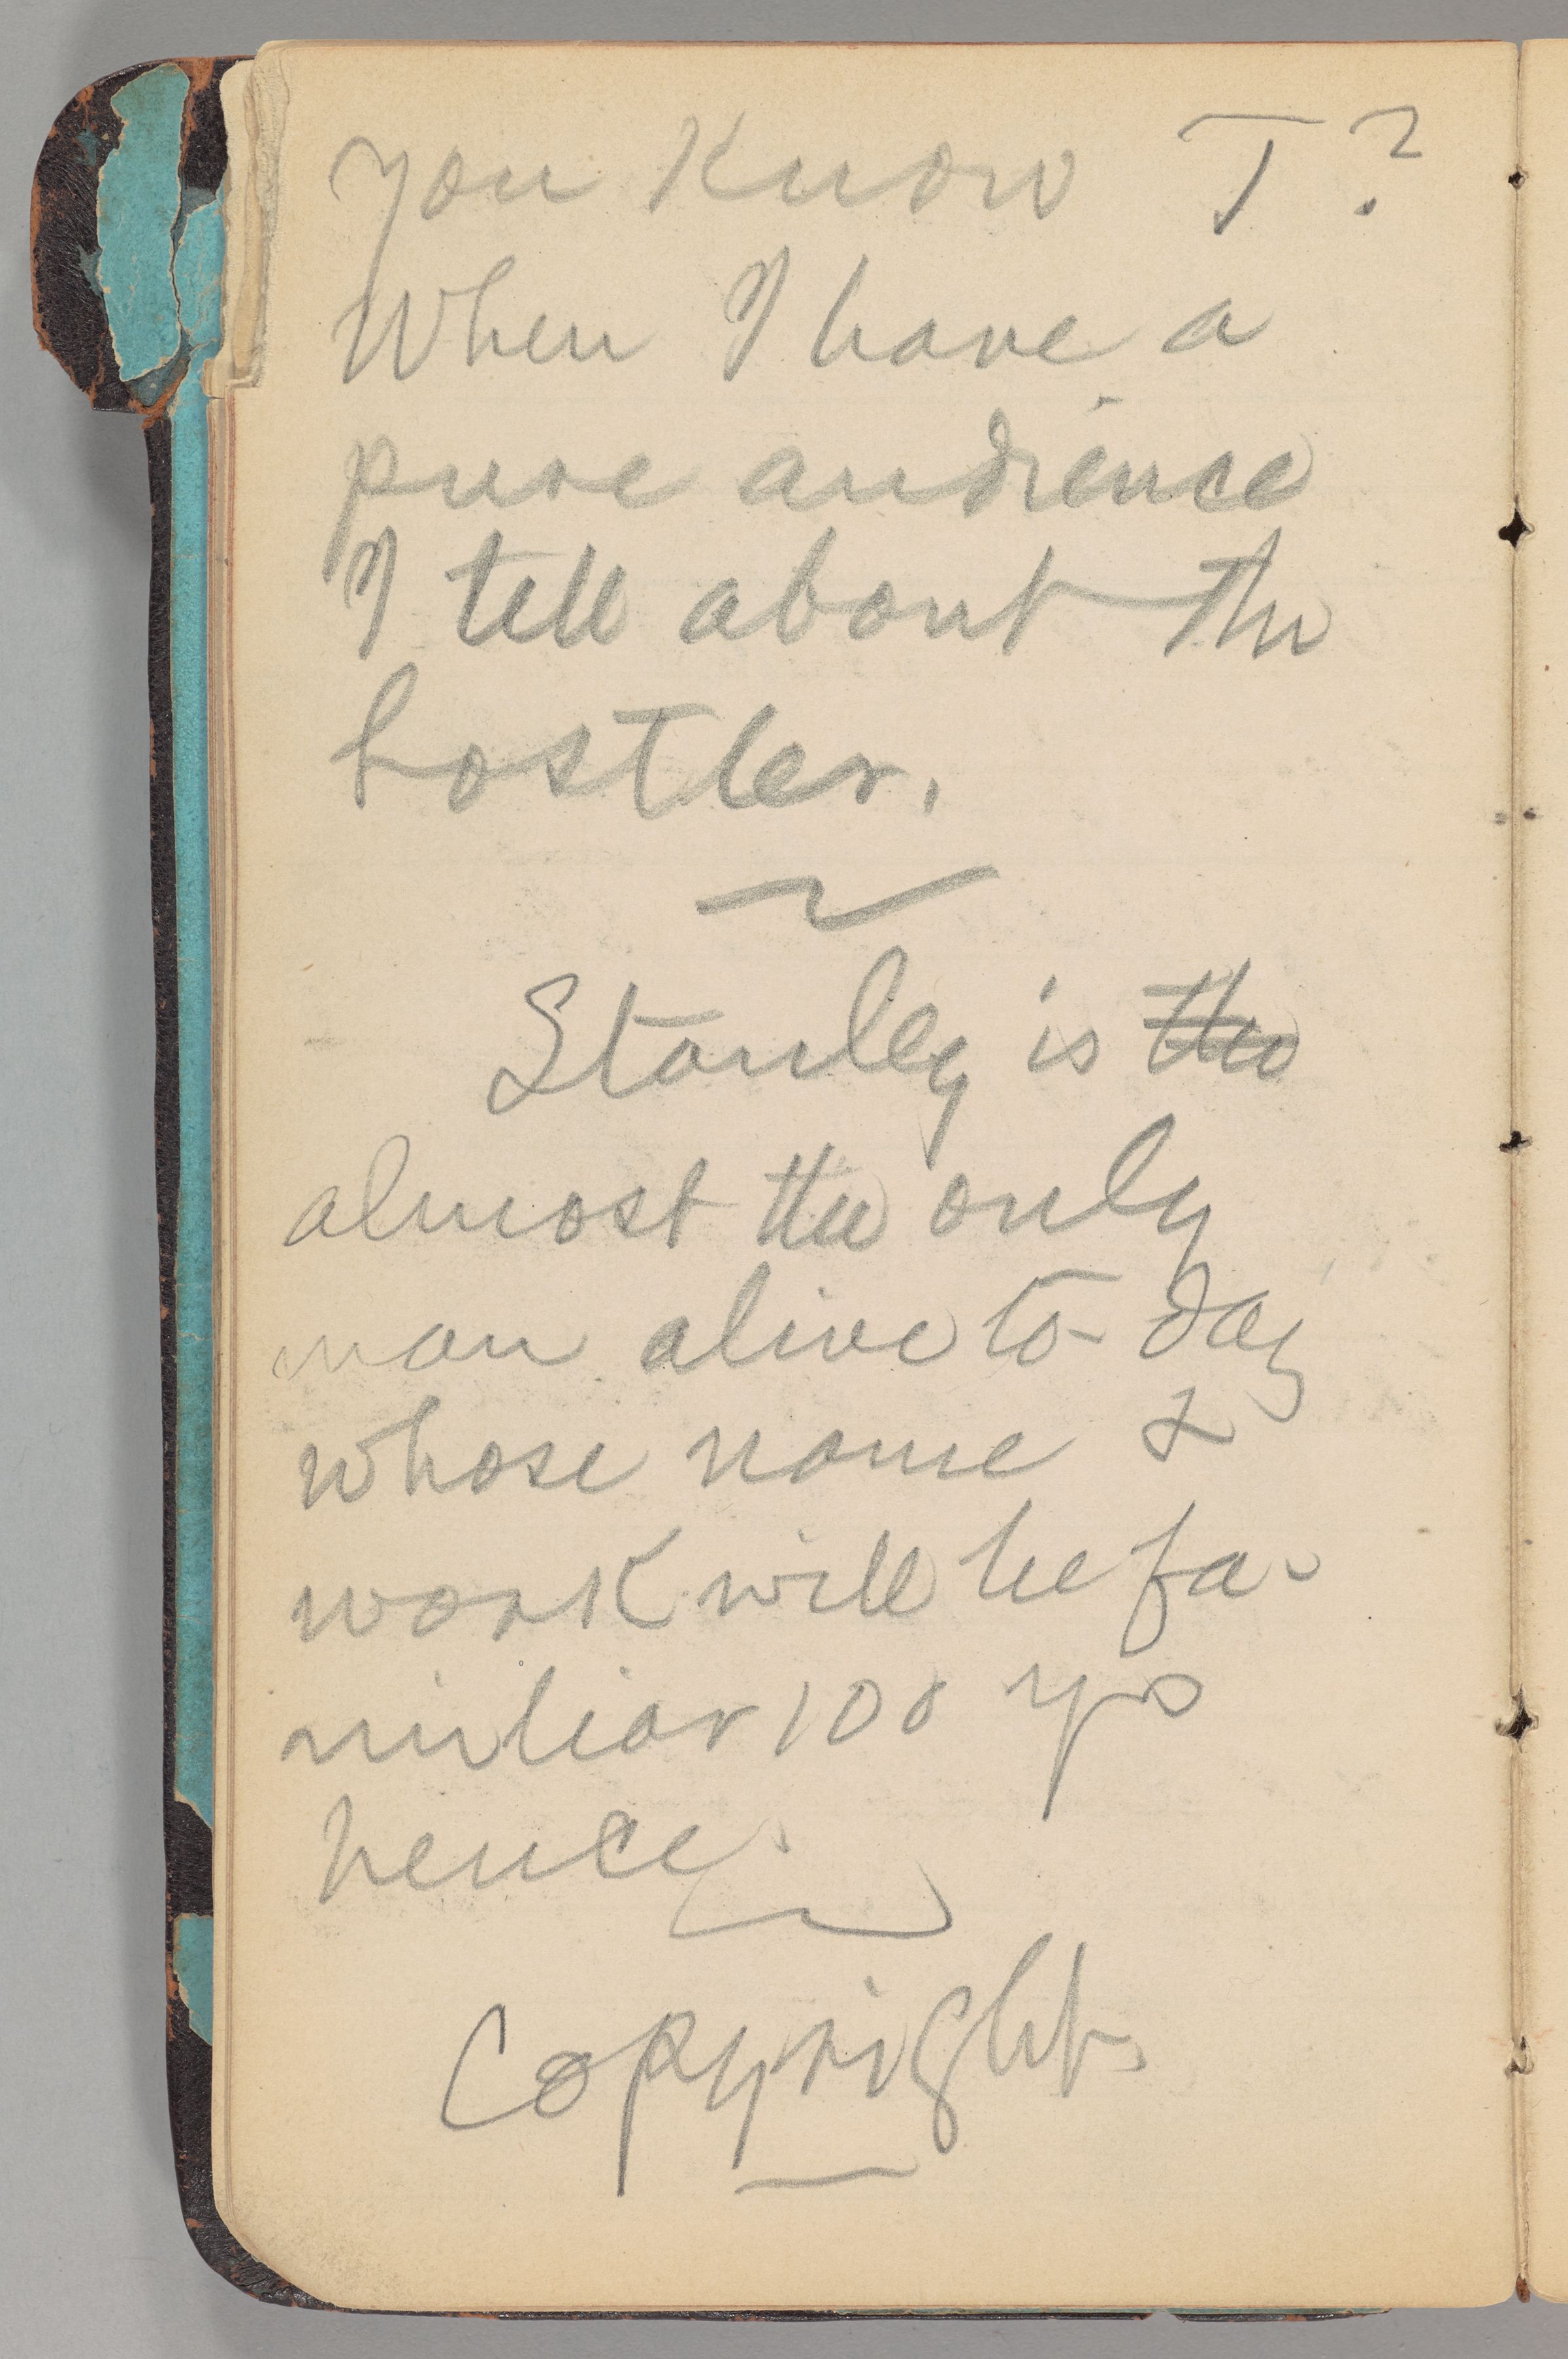 you know T?
When I have a
pure audience
I tell about the
hostler.
Stanley is the
almost the only
man alive to-day
whose name &
work will be fa-
miliar 100 yrs
hence.
Copyright.